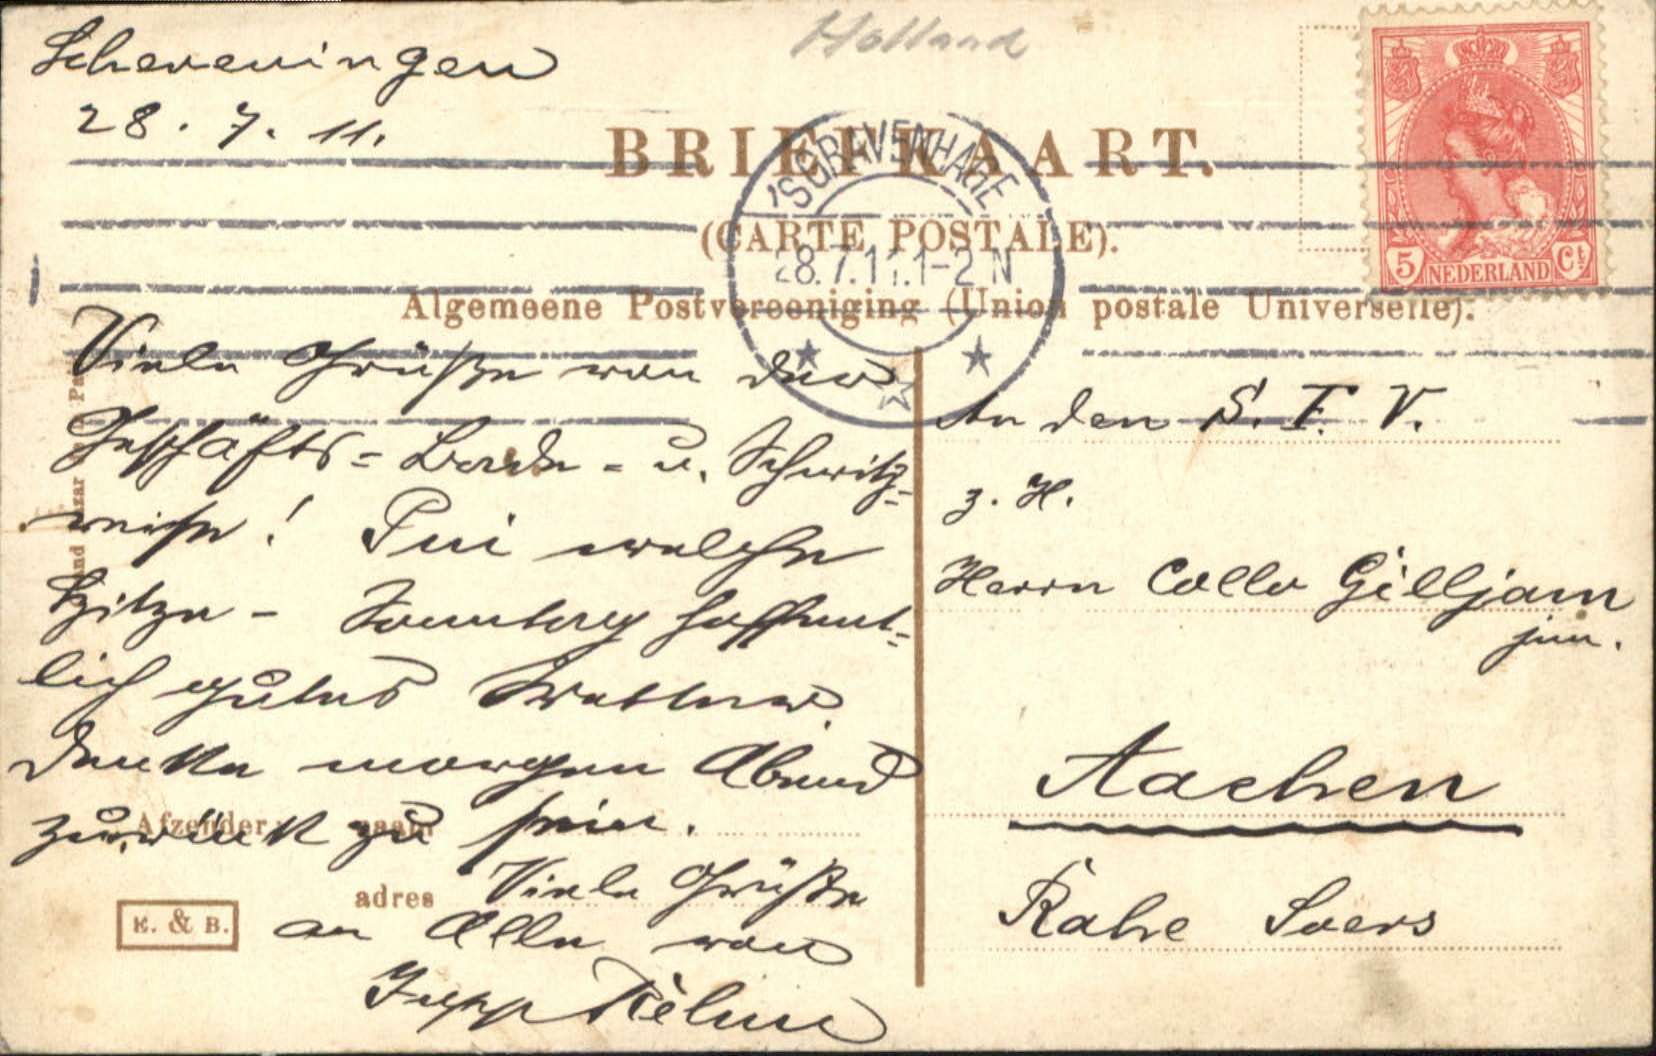 Holland
Scheveningen
28. 7. 11.
BRIEFKAART.
(CARTE POSTALE).
Algemeene Postvereeniging (Union postale Universelle).
'S GRAVENHAGE
28.7.11.1-2 N
5 NEDERLAND Ct
Viele Grüße von der
Geschäfts= Bade- u. Schwitz-
reise! Pui welche
Hitze - Sonntag hoffent-
lich gutes Wetter.
Denke morgen Abend
zurück zu sein.
Viele Grüße
an Alle von
Jupp
Afzender: naam
adres
E. & B.
An den S. F. V.
z. H.
Herrn Collo Gilljam
jun.
Aachen
Rahe Soers